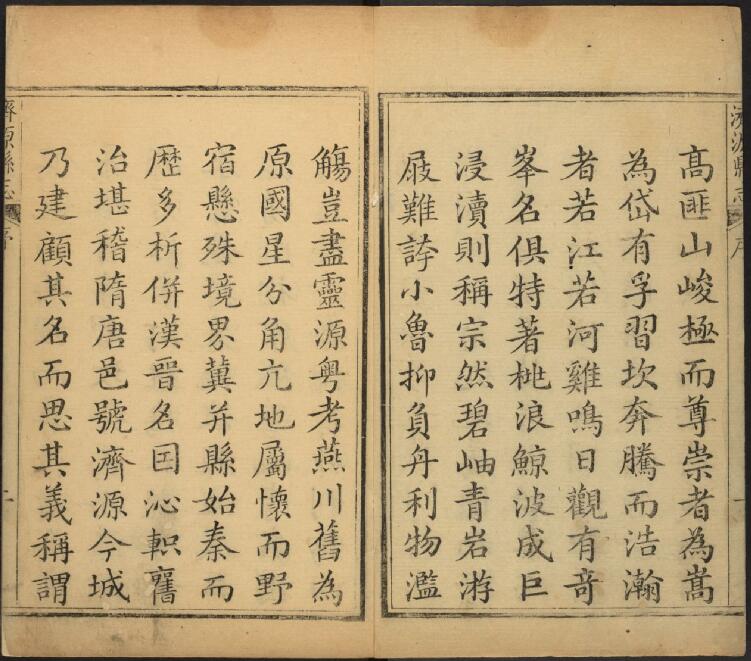 濟源縣志 序 一
高匪山峻極而尊崇者為嵩
為岱有孚習坎奔騰而浩瀚
者若江若河雞鳴日觀有奇
峯名俱特著桃浪鯨波成巨
浸瀆則稱宗然碧岫青岩游
屐難誇小魯抑負舟利物濫
觴豈盡靈源粵考燕川舊為
原國星分角亢地屬懷而野
宿懸殊境界冀并縣始秦而
歷多析併漢晉名因沁軹舊
治堪稽隋唐邑號濟源今城
乃建顧其名而思其義稱謂
濟源縣志 序 二